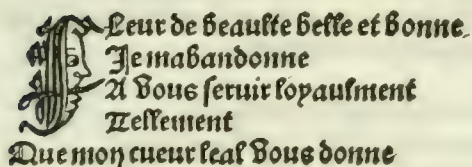 Fleur de beaulte belle et bonne
Je mabandonne
A vous seruir loyaulment
Tellement
Que mon cueur leal vous donne